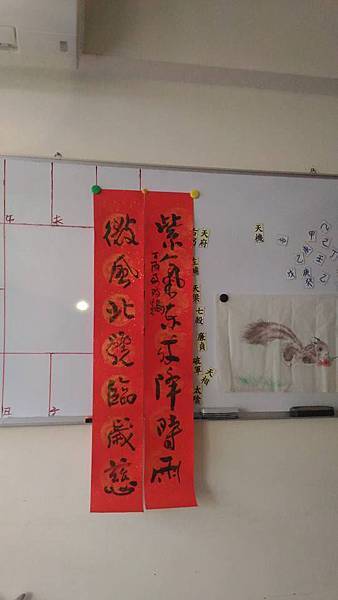 紫氣東來降時雨
丁酉
微風北臨歲慈
天府
天梁
七殺
廉貞
破軍
天相
太陰
天機
甲
乙
戊
己
庚
壬
癸
午
未
丑
子